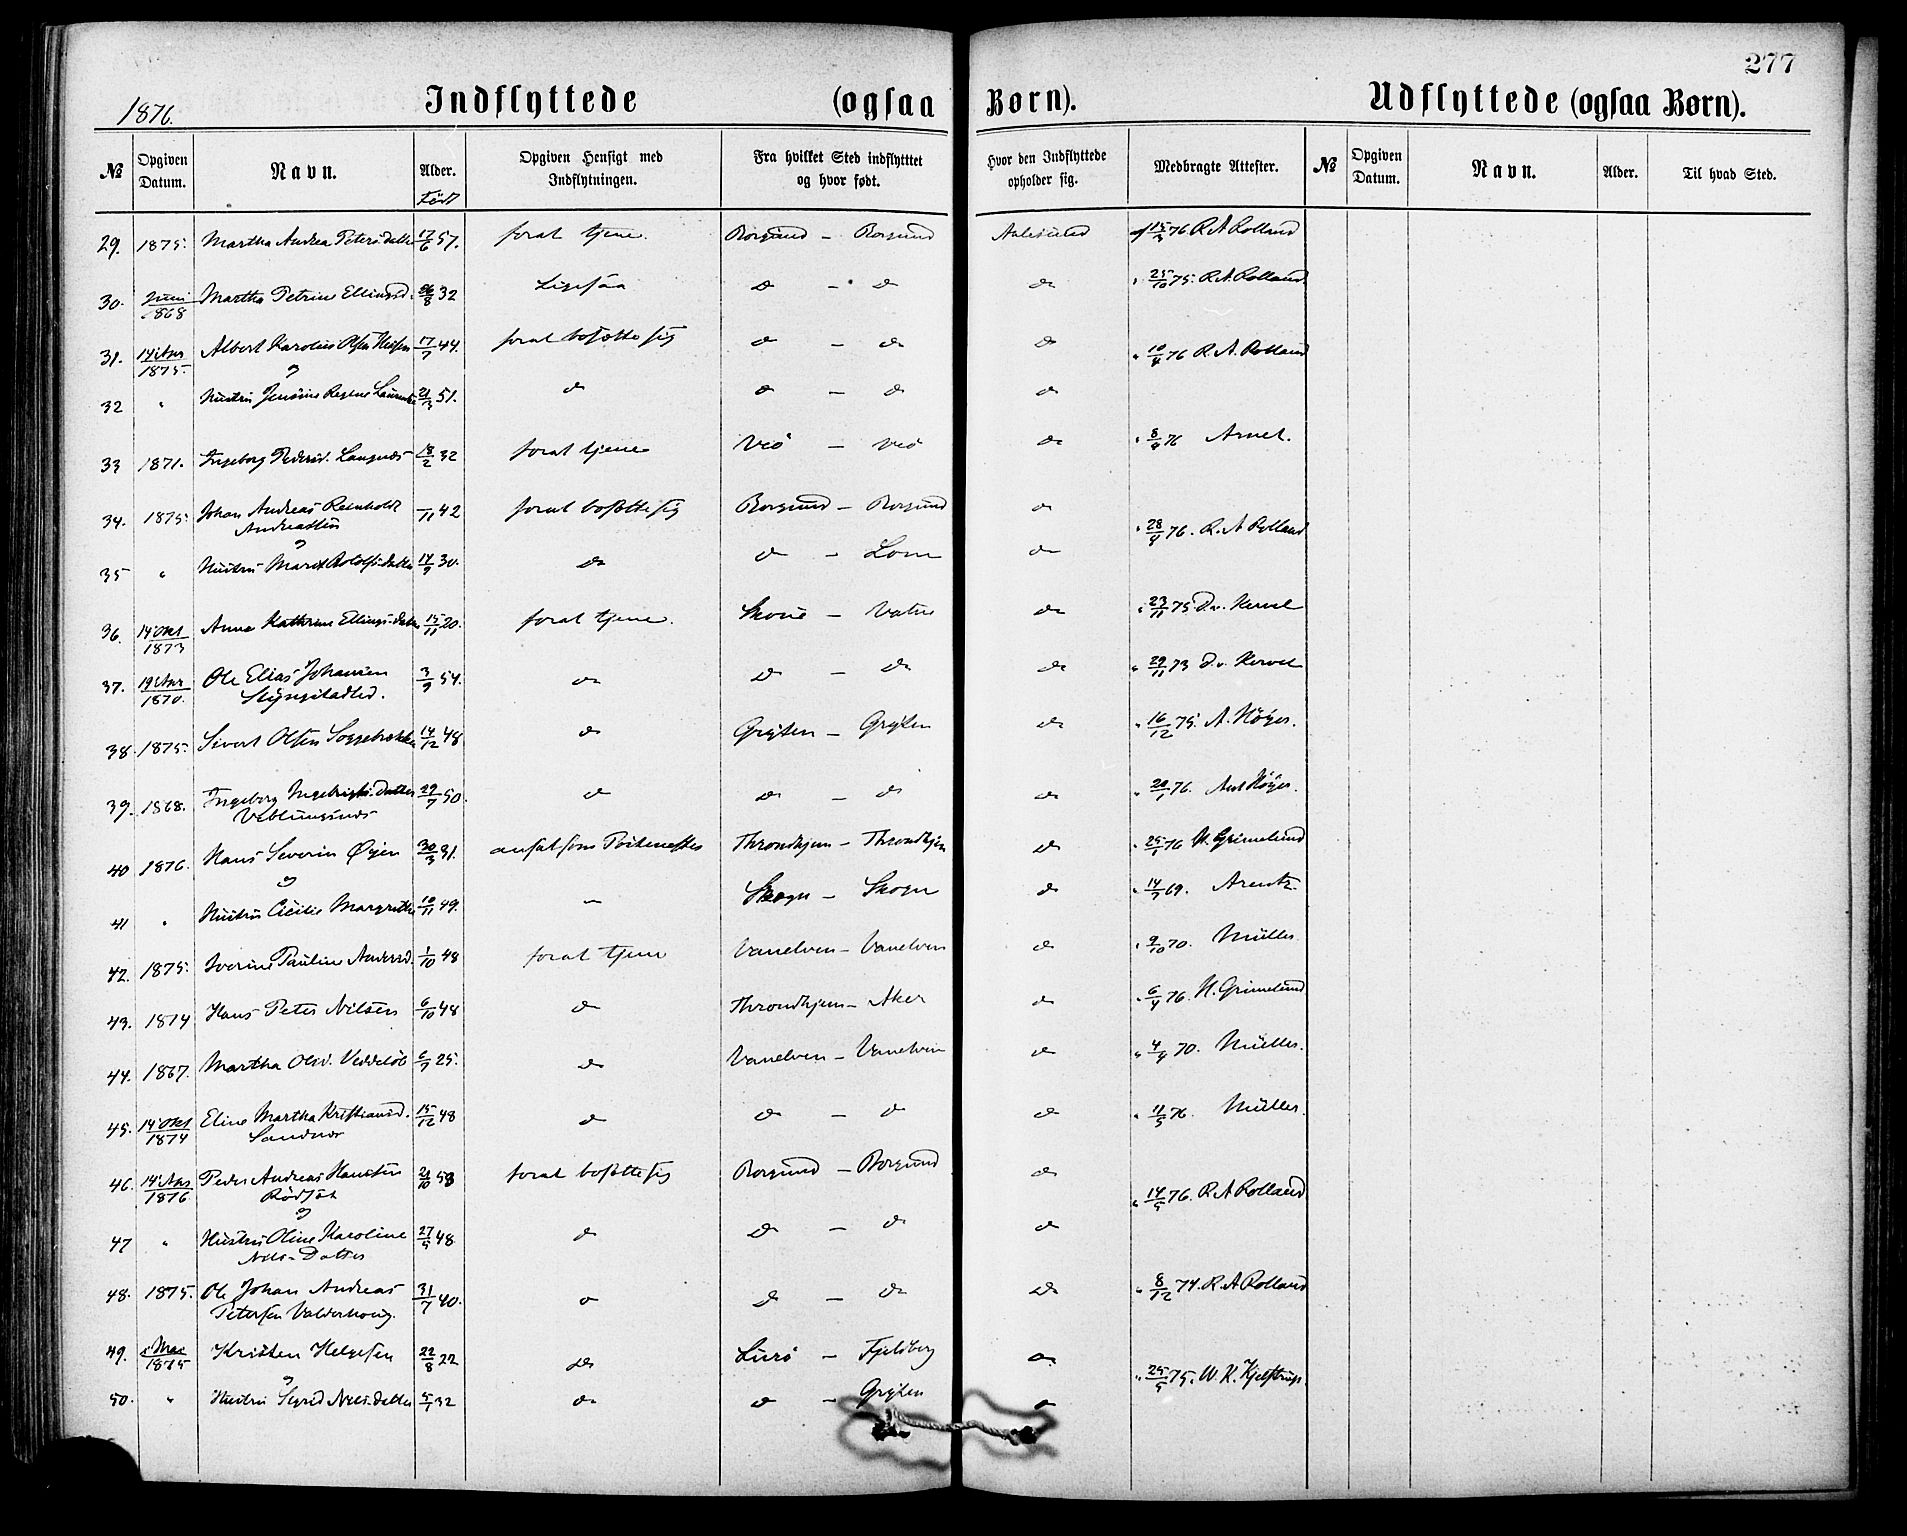 277
1876.
Indflyttede (ogsaa Børn).
Udflyttede (ogsaa Børn).
№ Opgiven Datum. Navn. Alder. Født Opgiven Hensigt med Indflytningen. Fra hvilket Sted indflytttet og hvor født. Hvor den Indflyttede opholder sig. Medbragte Attester. № Opgiven Datum. Navn. Alder. Til hvad Sted.
29. 1875. Martha Andrea Petersdatter 17/6 57. forat tjene. Borgund – Borgund Aalesund af 15/3 76 R A Rolland
30. Juni 1868 Martha Petrine Ellingsd. 26/8 32 Ligesaa do – do do " 25/10 75. R. A. Rolland.
31. 14 Apr 1875. Albert Karolius Olsen 17/7 44. forat bosætte sig do – do do " 10/4 76 R. A. Rolland
og
32 " Hustru Jensine Regine 21/3 51. do do – do do
33 1871. Ingeborg Pedersd. Langnes 18/2 32 forat tjene Veö – Veö do " 8/4 76
34. 1875. Johan Andreas Reinholdt /11 42 forat bosætte sig Borgund – Borgund do " 28/4 76. R. A Rolland
Andreassen
og
35 " Hustru Marit 14/9 30. do do – Lom do
36. 14 Okt 1873 Anna Kathrine Ellingsdatter 15/11 20. forat tjene. Skoue – Vatne do " 23/11 75
37. 14 Apr 1870. Ole Elias Johansen 3/9 54. do do – do do " 29/11 73
38. 1875. Sivert Olsen 14/12 48 do Gryten – Gryten do " 16/12 75. A. Höyer.
39. 1868. Ingeborg Ingebrigtsdatter 29/7 50. do do – do do " 20/1 76. Höyer.
Veblungsnes
40 1876. Hans Severin Øyen 30/3 31. ansat som Postmester Throndhjem – Throndhjem do " 25/1 76 H. Grimelund
og
41 " Hustru Cicilie Margrethe 10/11 49. – Skogn – Skogn do " 14/7 69. Arentz.
42. 1875. Iverine Pauline Andersd. 1/10 48 forat tjene Vanelven – Vanelven do " 9/10 70. Müller
43. 1874 Hans Peter Nilsen 6/10 48 do Throndhjem – Aker do " 6/4 76. H. Grimelund
44. 1867. Martha Olsd. 6/7 25. do Vanelven – Vanelven do " 4/4 70. Müller.
45. 14 Okt 1874 Eline Martha Kristiansd. 15/12 48 do do – do do " 11/5 76. Müller.
46. 14 Apr 1876. Peder Andreas Hansen 21/10 53 forat bosætte sig Borgund – Borgund do " 14/5 76. R. A Rolland
og
47 " Hustru Oline Karoline 27/5 48 do do – do do
Nils-Datter
48. 1875. Ole Johan Andreas 31/7 40. do do – do do " 8/12 74. R. A Rolland
Petersen Valderhoug.
49. Mai 1875 Kristen Helgesen 22/8 22 do Lurö – Fjelberg do " 25/5 75. W. K. Kjelstrup.
og
50. " Hustru Sigrid Nilsdatter 5/1 32 do do – Gryten do